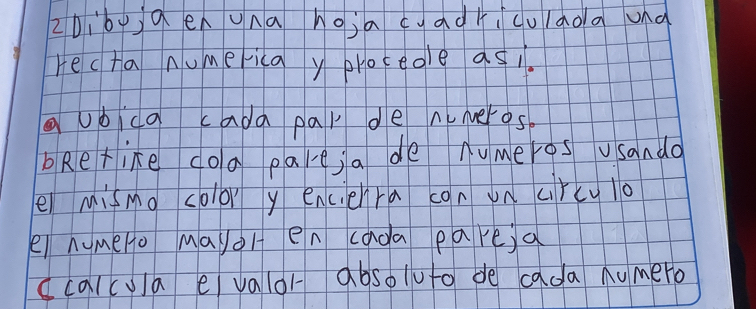 2 Dibuja en una hoja cuadriculada una
recta numerica y procede asi.
a ubica cada par de numeros.
b Retiñe cda pareja de numeros usando
el mismo color y encierra con un circulo
el numero mayor en cada pareja
c calcula el valor absoluto de cada numero